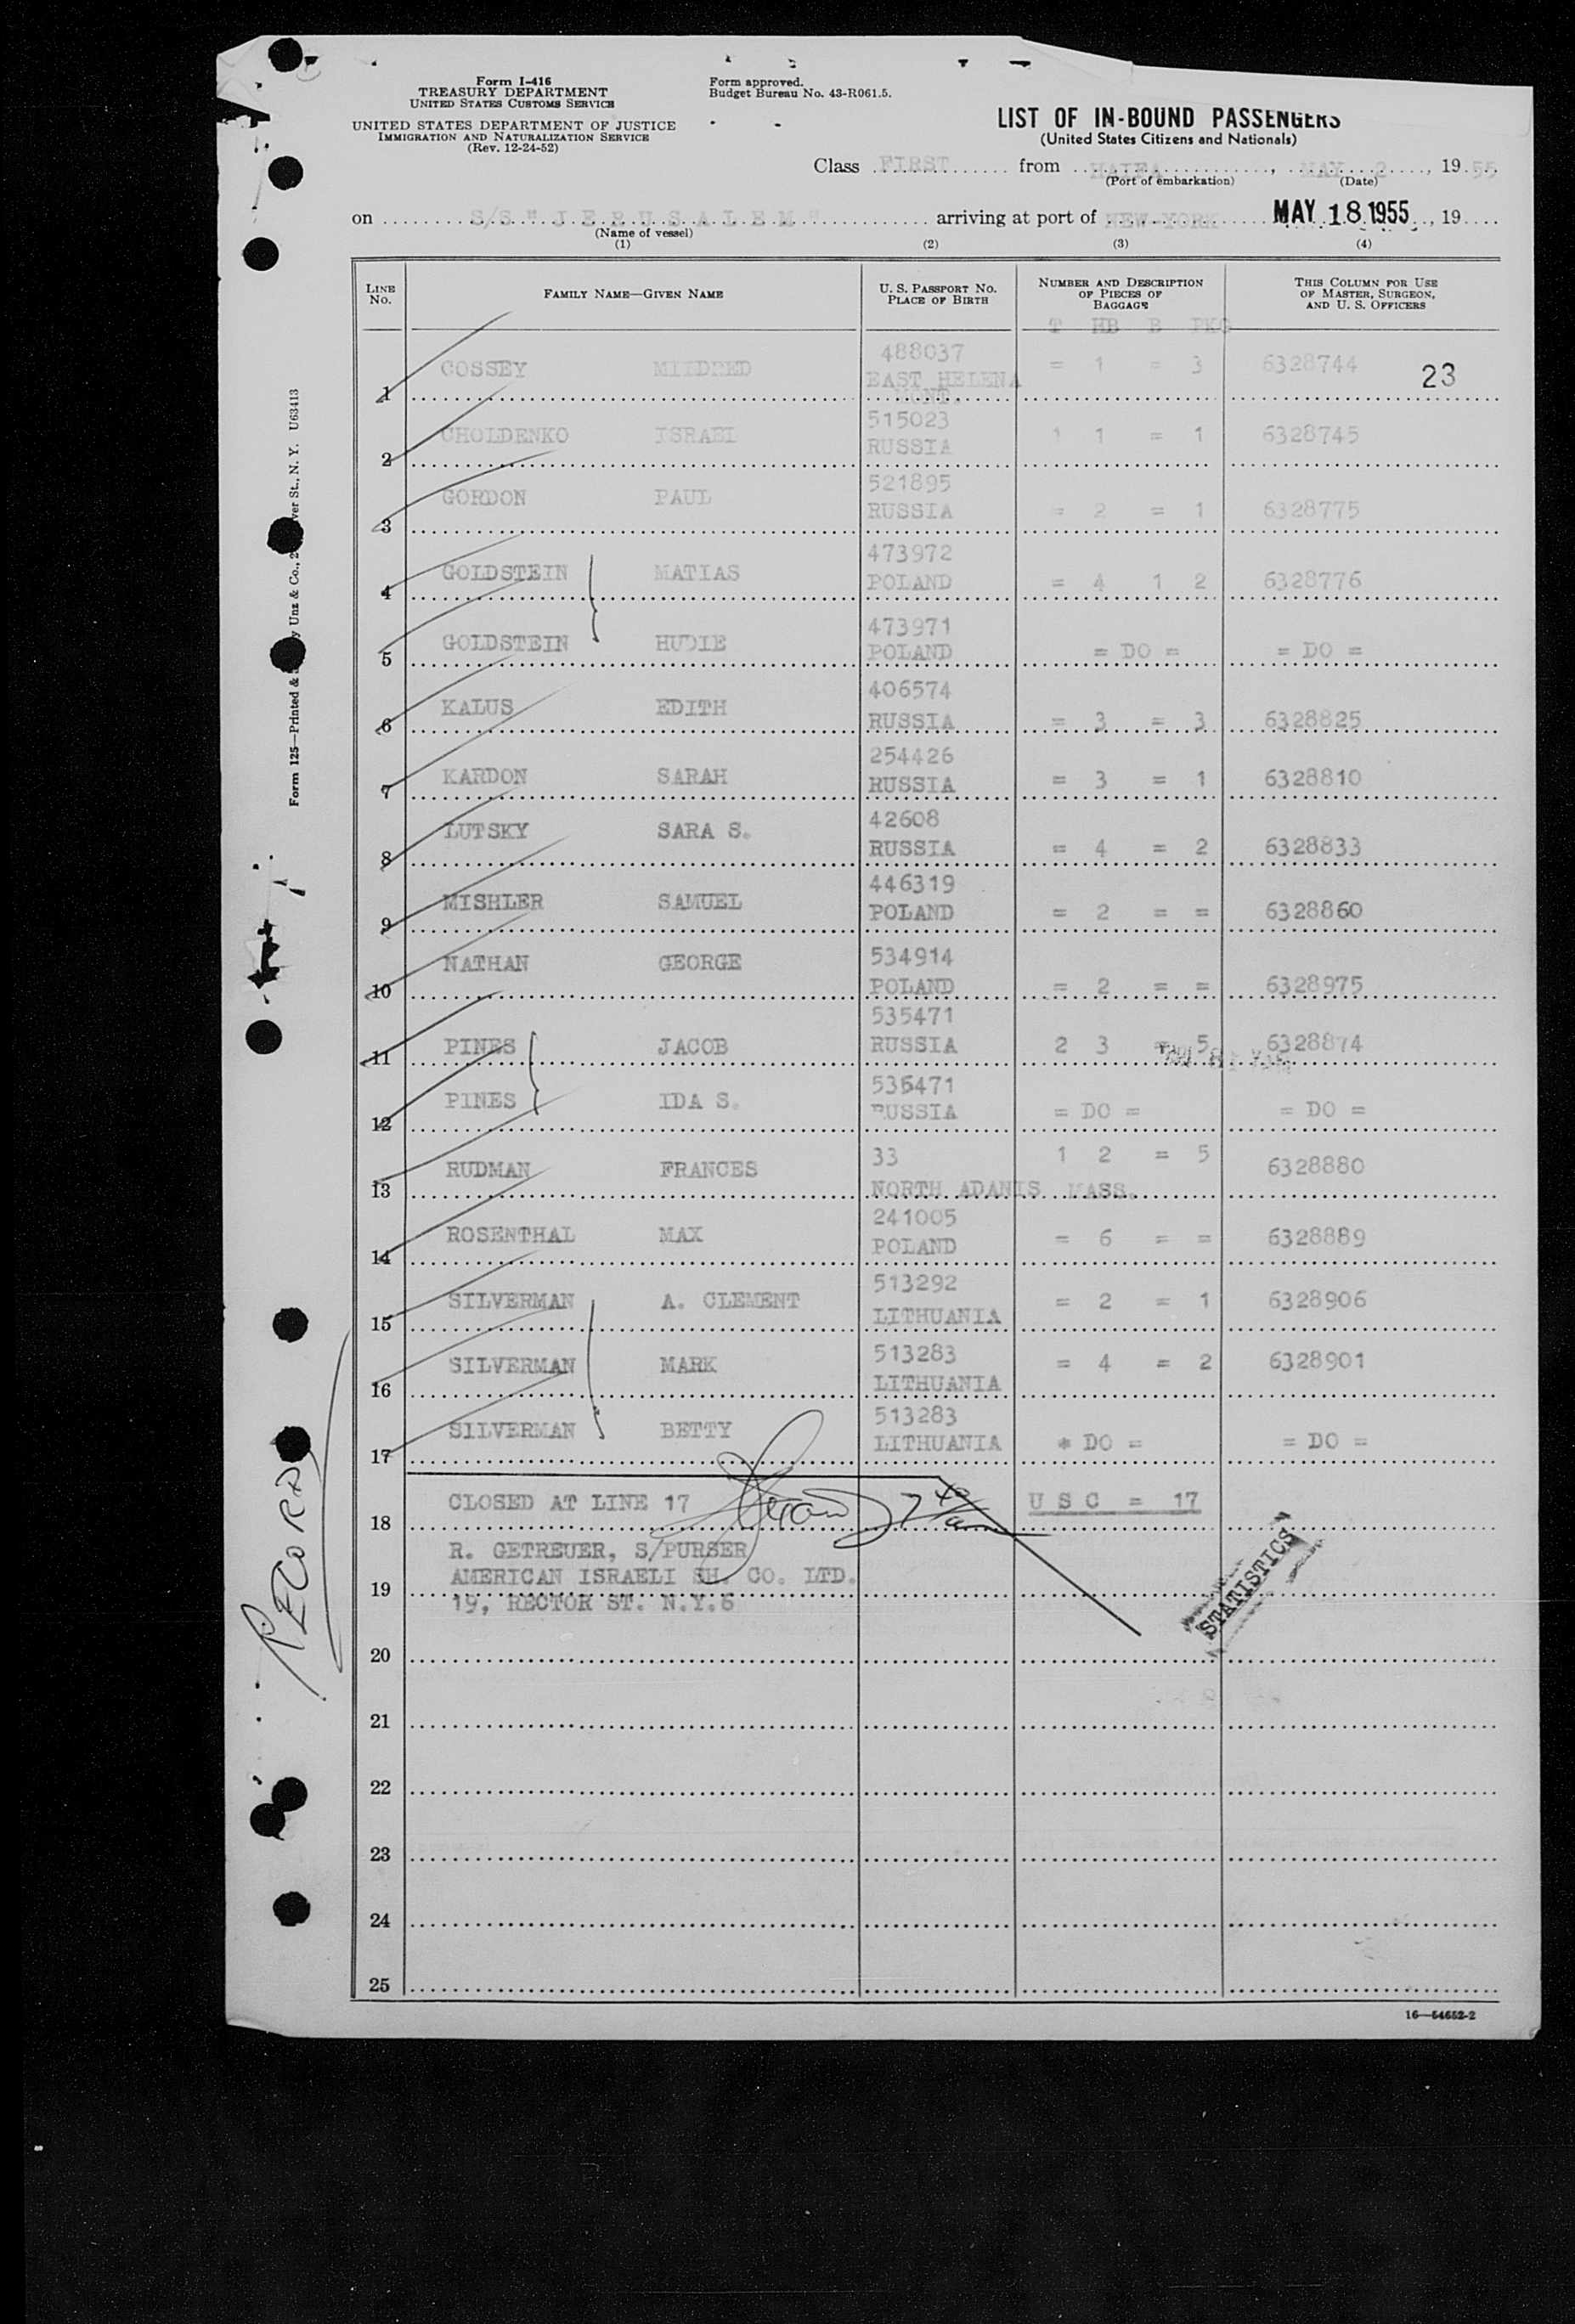 Form I-416
TREASURY DEPARTMENT
UNITED STATES CUSTOMS SERVICE
UNITED STATES DEPARTMENT OF JUSTICE
IMMIGRATION AND NATURALIZATION SERVICE
(Rev. 12-24-52)
Form approved.
Budget Bureau No. 43-R061.5.
LIST OF IN-BOUND PASSENGERS
(United States Citizens and Nationals)
Class FIRST from HAIFA, MAY 2, 19 55
(Port of embarkation) (Date)
on S/S "JERUSALEM" arriving at port of NEW-YORK MAY 18 1955, 19
(Name of vessel)
(1) (2) (3) (4)
LINE NO. FAMILY NAME—GIVEN NAME U. S. PASSPORT NO. PLACE OF BIRTH NUMBER AND DESCRIPTION OF PIECES OF BAGGAGE THIS COLUMN FOR USE OF MASTER, SURGEON, AND U. S. OFFICERS
T HB B PKG
488037
1 COSSEY MILDRED EAST HELENA MONT. = 1 = 3 6328744 23
515023
2 CHOLDENKO ISRAEL RUSSIA 1 1 = 1 6328745
521895
3 GORDON PAUL RUSSIA = 2 = 1 6328775
473972
4 GOLDSTEIN MATIAS POLAND = 4 1 2 6328776
473971
5 GOLDSTEIN HUDIE POLAND = DO = = DO =
406574
6 KALUS EDITH RUSSIA = 3 = 3 6328825
254426
7 KARDON SARAH RUSSIA = 3 = 1 6328810
42608
8 LUTSKY SARA S. RUSSIA = 4 = 2 6328833
446319
9 MISHLER SAMUEL POLAND = 2 = = 6328860
534914
10 NATHAN GEORGE POLAND = 2 = = 6328975
535471
11 PINES JACOB RUSSIA 2 3 = 5 6328874
535471
12 PINES IDA S. RUSSIA = DO = = DO =
33
13 RUDMAN FRANCES NORTH ADAMS MASS. 1 2 = 5 6328880
241005
14 ROSENTHAL MAX POLAND = 6 = = 6328889
513292
15 SILVERMAN A. CLEMENT LITHUANIA = 2 = 1 6328906
513283
16 SILVERMAN MARK LITHUANIA = 4 = 2 6328901
513283
17 SILVERMAN BETTY LITHUANIA * DO = = DO =
18 CLOSED AT LINE 17 U S C = 17
R. GETREUER, S/PURSER
19 AMERICAN ISRAELI SH. CO. LTD.
19, RECTOR ST. N.Y.6
STATISTICS
20
21
22
23
24
25
16—54652-2
RECORD
Form 125—Printed & Unz & Co., 2 ver St., N. Y. U63413